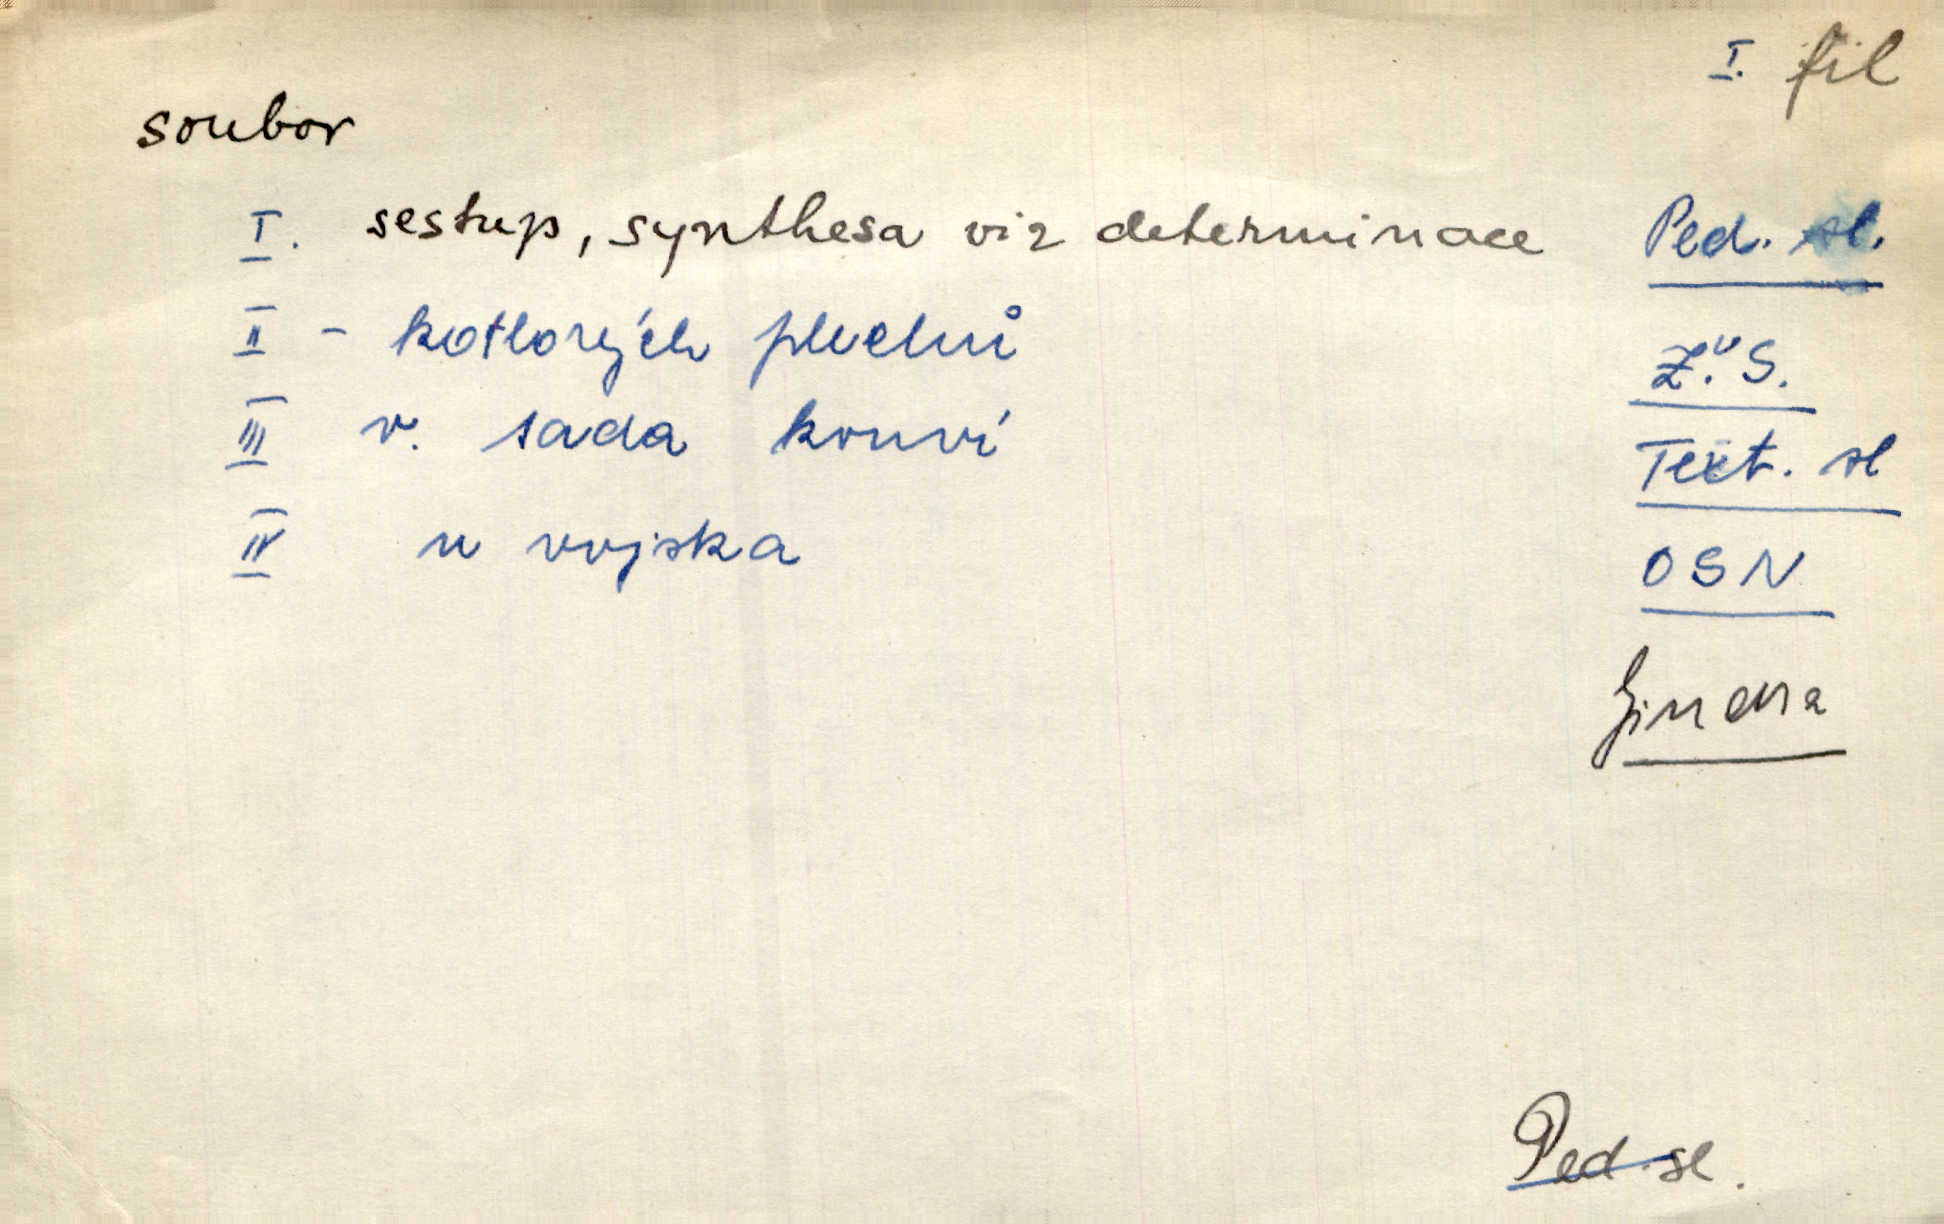 I. fil
soubor
I. sestup, synthesa viz determinace Ped. sl.
II - kotlových plechů Z. S.
III v. sada konví Text. sl
IV u vojska OSN
Jindra
Ped. sl.